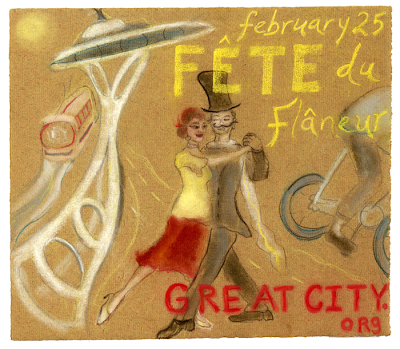 february 25
FÊTE du
Flâneur
GREAT CITY.
ORg